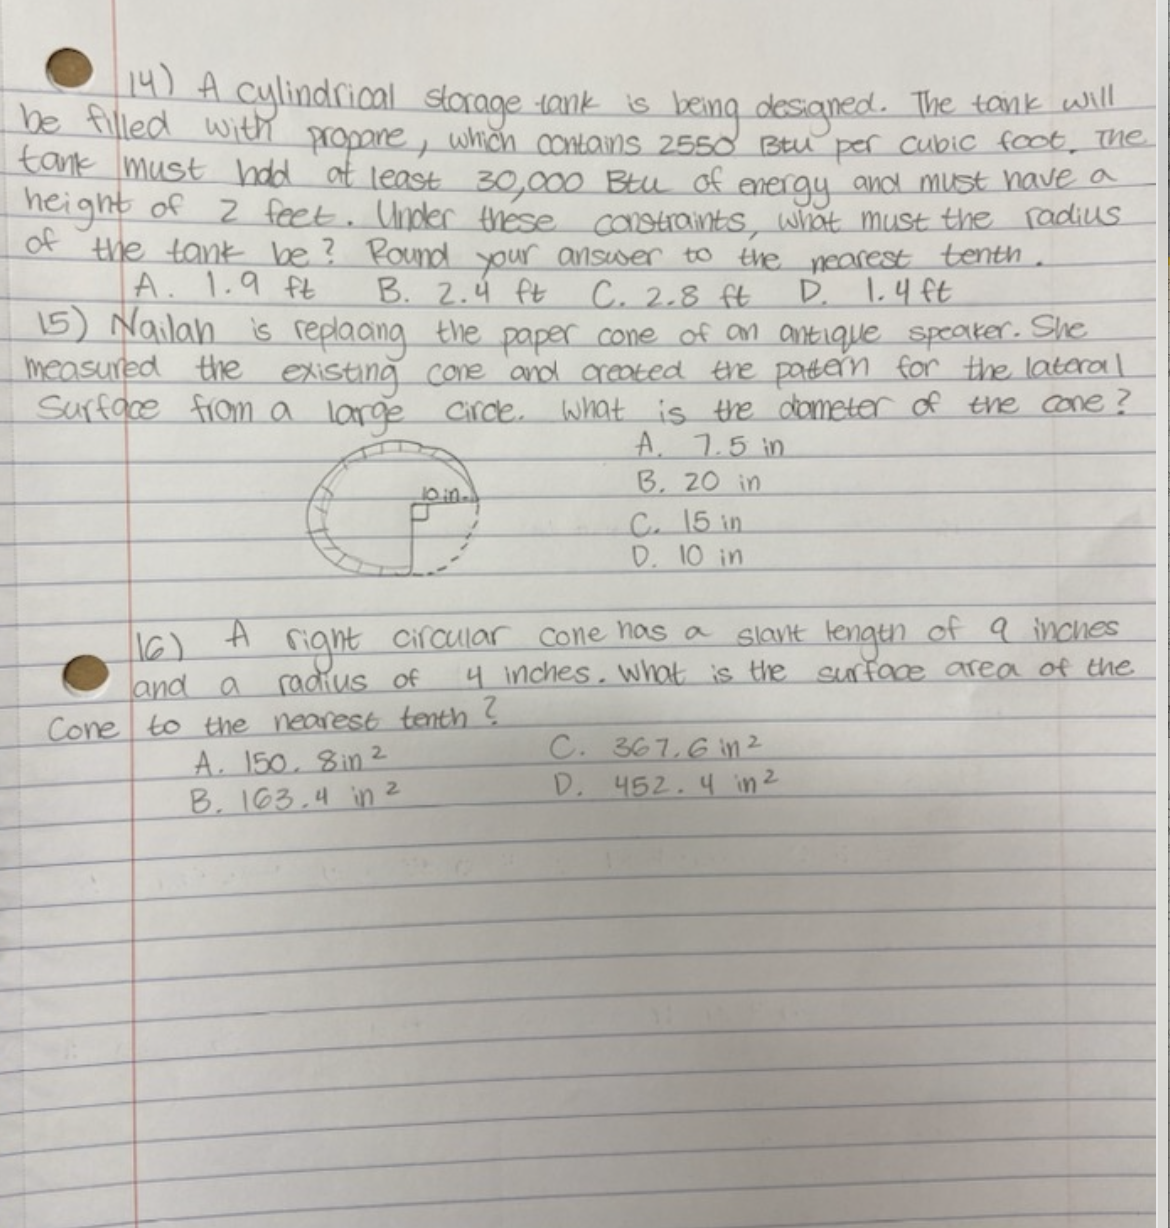 14) A cylindrical storage tank is being designed. The tank will
be filled with propane, which contains 2550 Btu per cubic foot. The
tank must hold at least 30,000 Btu of energy and must have a
height of 2 feet. Under these constraints, what must the radius
of the tank be? Round your answer to the nearest tenth.
A. 1.9 ft B. 2.4 ft C. 2.8 ft D. 1.4 ft
15) Nailah is replacing the paper cone of an antique speaker. She
measured the existing cone and created the pattern for the lateral
Surface from a large circle. What is the diameter of the cone?
A. 7.5 in
B. 20 in
10 in.
C. 15 in
D. 10 in
16) A right circular cone has a slant length of 9 inches
and a radius of 4 inches. What is the surface area of the
Cone to the nearest tenth?
A. 150.8 in² C. 367.6 in²
B. 163.4 in² D. 452.4 in²